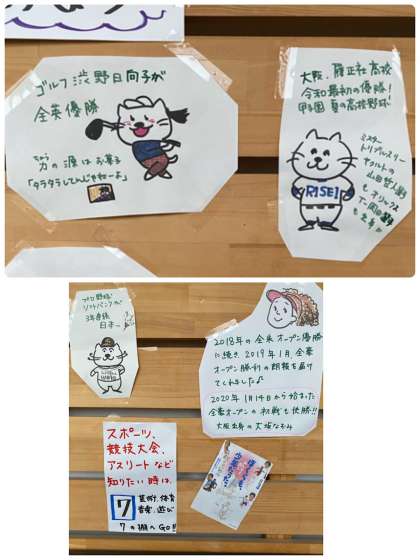 ゴルフ渋野日向子が
全英優勝
ちから
力の源はお菓子
「タラタラしてんじゃねーよ」
大阪、履正社高校
令和最初の優勝!
甲子園 夏の高校野球
ミスター
トリプルスリー
ヤクルトの
山田哲人選手
も オリックス
T-岡田選手
も出身!!
RISEI
プロ野球
ソフトバンクが
3年連続
日本一
2018年の全米オープン優勝
に続き2019年1月、全豪
オープン勝利の朗報を届け
てくれました♪
2020年1月14日から始まった
全豪オープンの初戦も快勝!!
大阪出身の大坂なおみ
スポーツ、
競技大会、
アスリートなど
知りたい時は、
7
芸術、体育
音楽、遊び
7の棚へGO!!